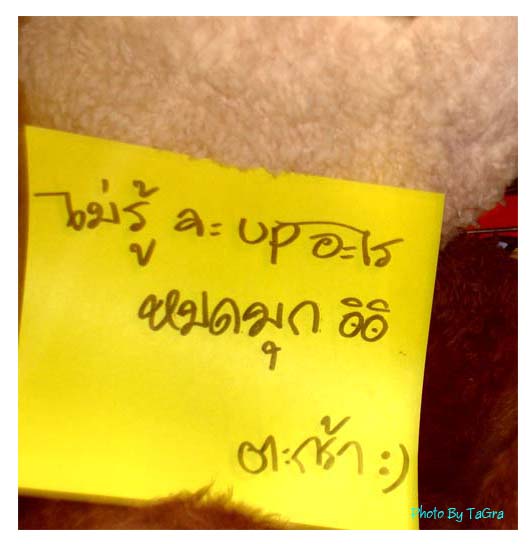 ไม่รู้ จะ up อะไร
หมดมุก อิอิ
ตะกร้า :)
Photo By TaGra